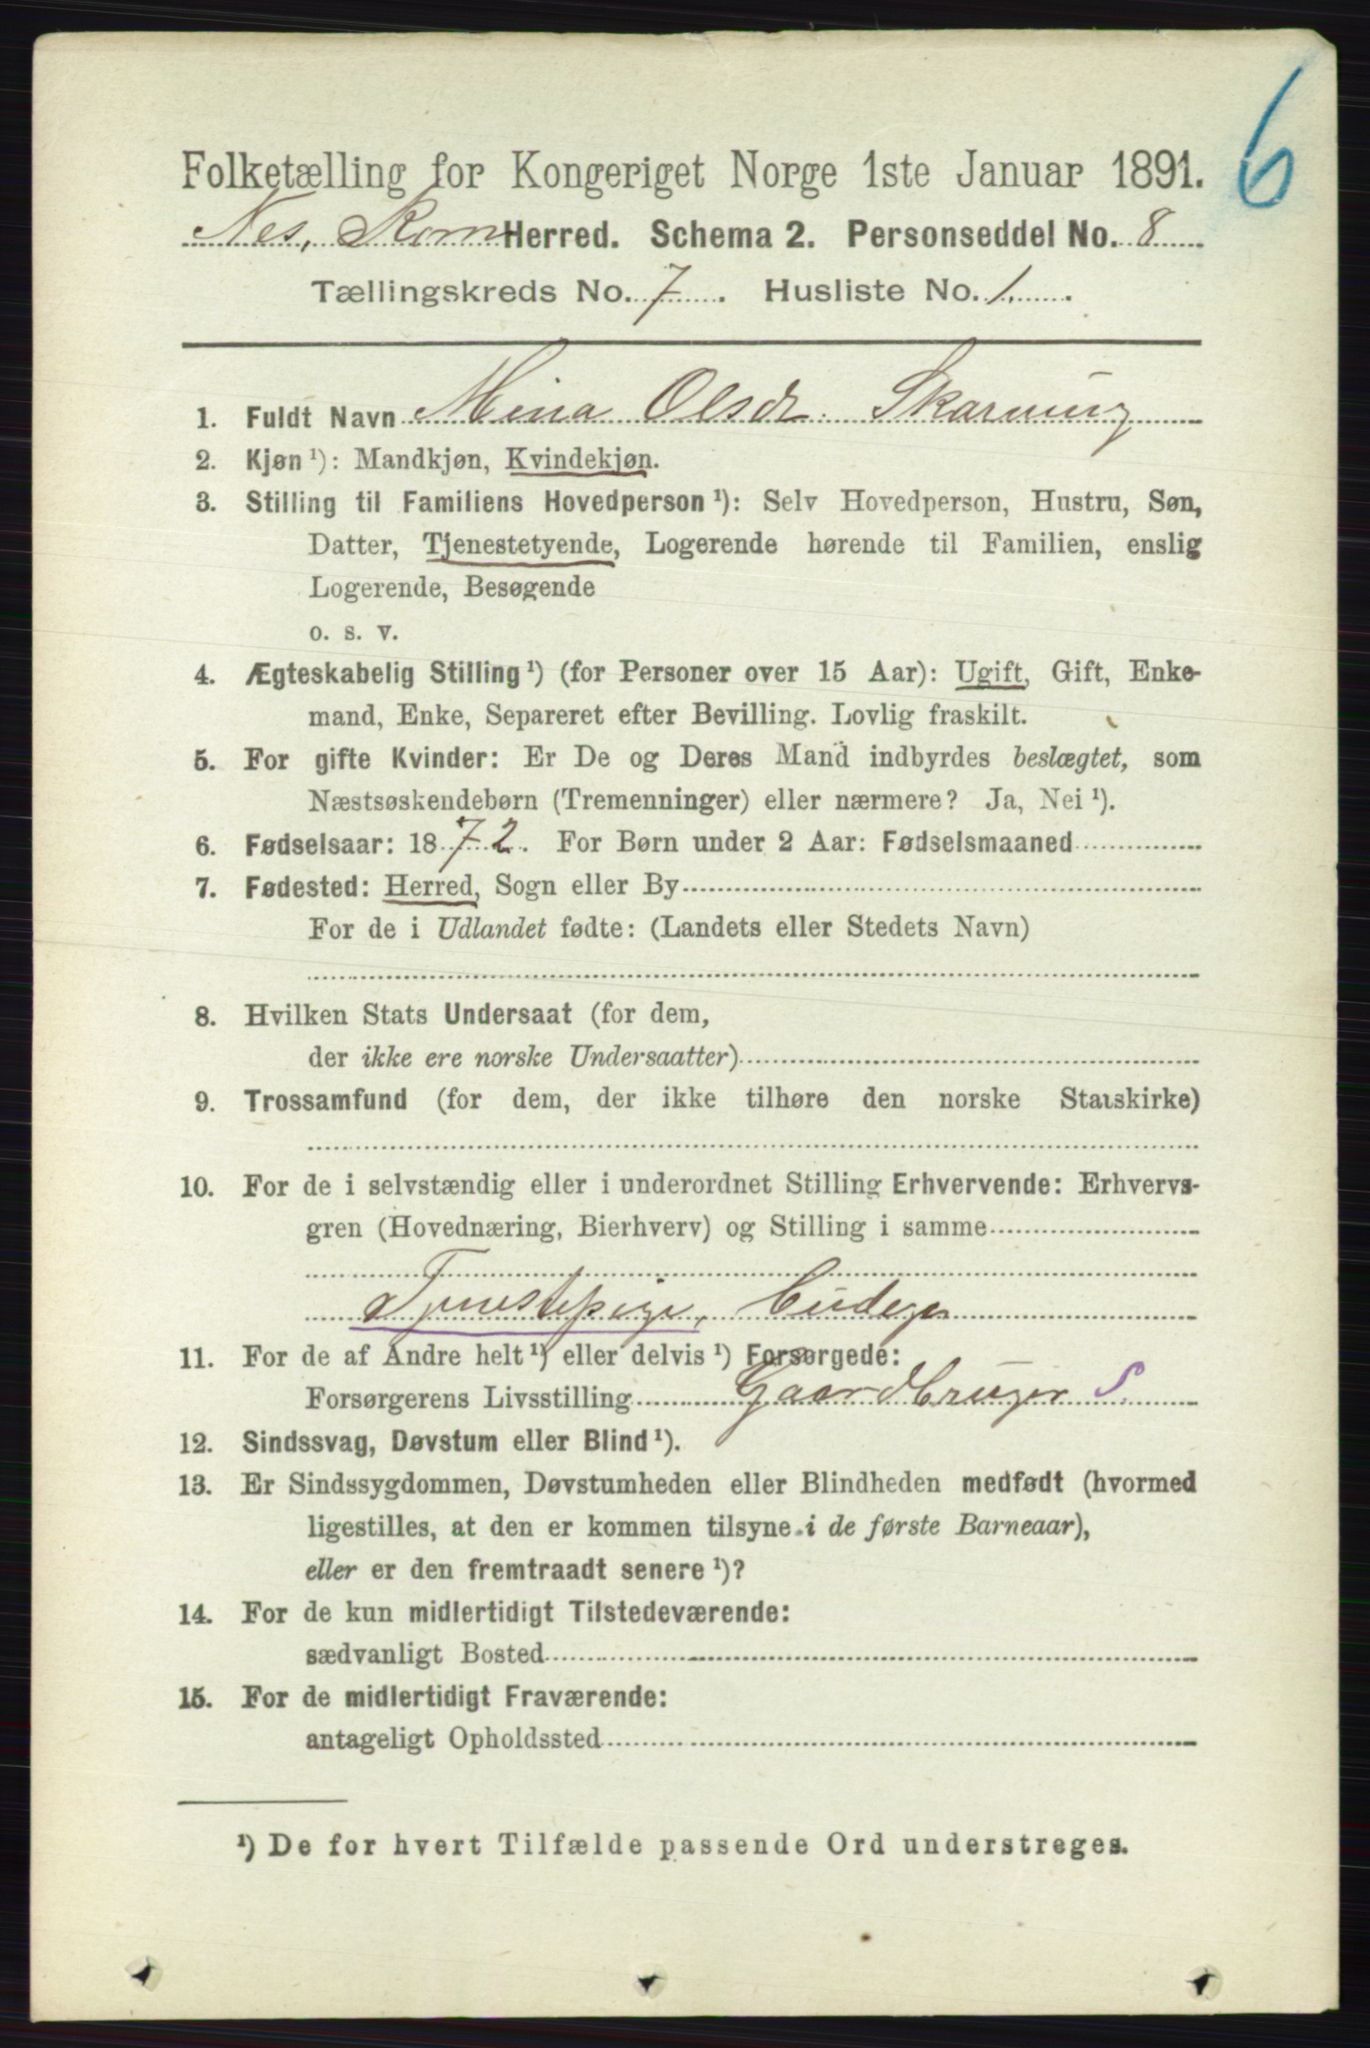 6
Folketælling for Kongeriget Norge 1ste Januar 1891.
Nes, Rom Herred. Schema 2. Personseddel No. 8
Tællingskreds No. 7. Husliste No. 1.
1. Fuldt Navn Mina Olsdr. Skarning
2. Kjøn ¹): Mandkjøn, Kvindekjøn.
3. Stilling til Familiens Hovedperson ¹): Selv Hovedperson, Hustru, Søn,
Datter, Tjenestetyende, Logerende hørende til Familien, enslig
Logerende, Besøgende
o. s. v.
4. Ægteskabelig Stilling ¹) (for Personer over 15 Aar): Ugift, Gift, Enke-
mand, Enke, Separeret efter Bevilling. Lovlig fraskilt.
5. For gifte Kvinder: Er De og Deres Mand indbyrdes beslægtet, som
Næstsøskendebørn (Tremenninger) eller nærmere? Ja, Nei ¹).
6. Fødselsaar: 1872. For Børn under 2 Aar: Fødselsmaaned
7. Fødested: Herred, Sogn eller By
For de i Udlandet fødte: (Landets eller Stedets Navn)
8. Hvilken Stats Undersaat (for dem,
der ikke ere norske Undersaatter)
9. Trossamfund (for dem, der ikke tilhøre den norske Statskirke)
10. For de i selvstændig eller i underordnet Stilling Erhvervende: Erhvervs-
gren (Hovednæring, Bierhverv) og Stilling i samme
Tjenestepige,
11. For de af Andre helt ¹) eller delvis ¹) Forsørgede:
Forsørgerens Livsstilling Gaardbruger S.
12. Sindssvag, Døvstum eller Blind ¹).
13. Er Sindssygdommen, Døvstumheden eller Blindheden medfødt (hvormed
ligestilles, at den er kommen tilsyne i de første Barneaar),
eller er den fremtraadt senere ¹)?
14. For de kun midlertidigt Tilstedeværende:
sædvanligt Bosted
15. For de midlertidigt Fraværende:
antageligt Opholdssted
¹) De for hvert Tilfælde passende Ord understreges.